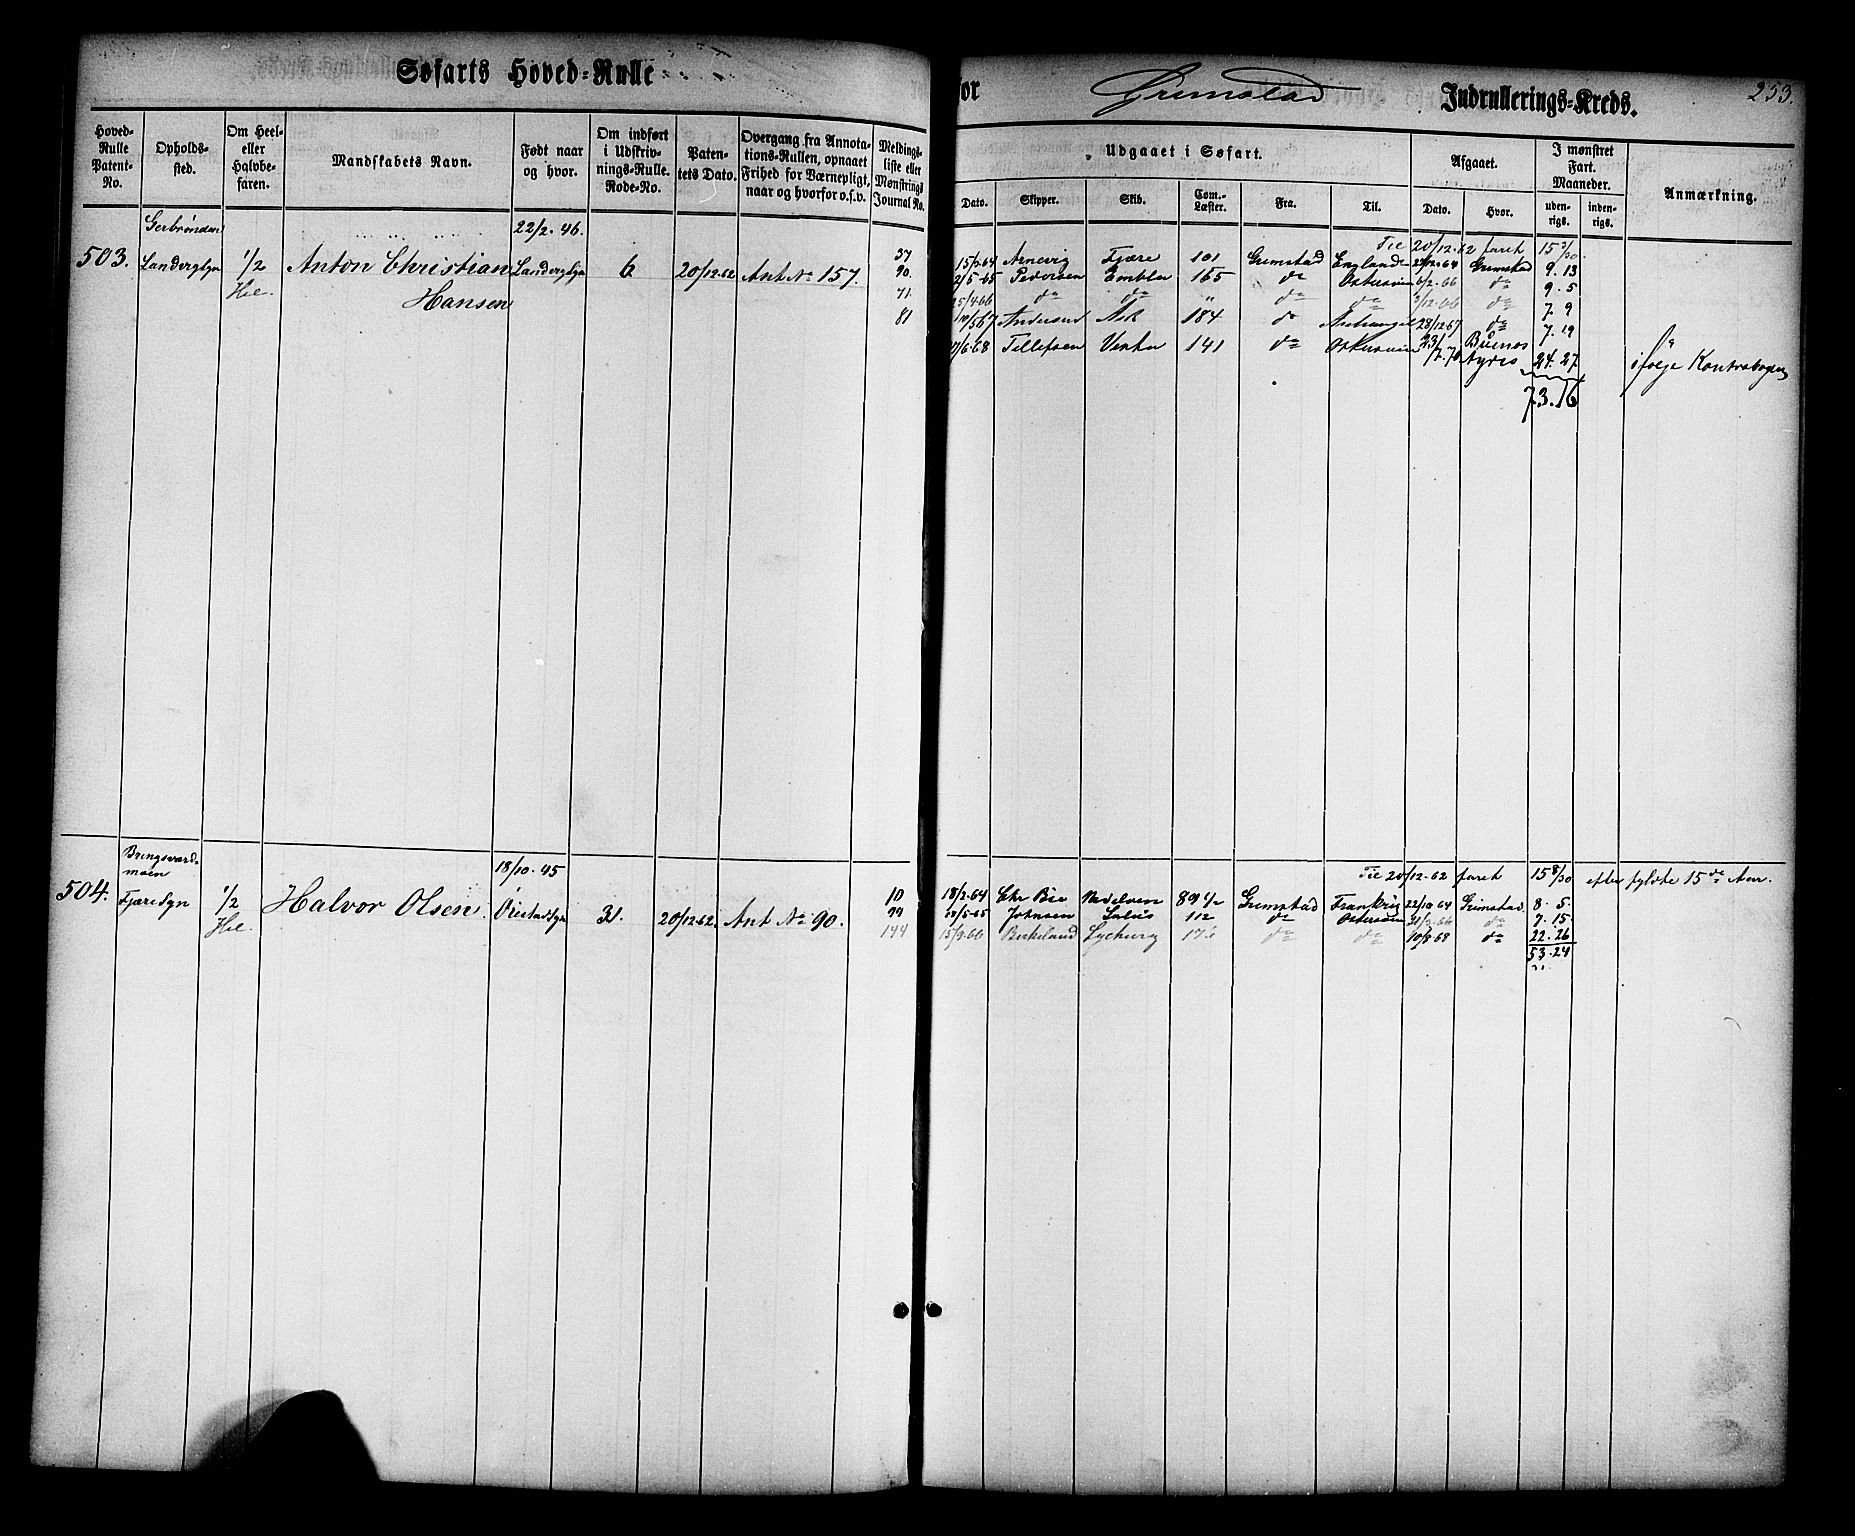 Søfarts Hoved-Rulle
for Grimstad Indrullerings-Kreds.
253.
Hoved-Rulle Patent-No.
Opholds-sted.
Om Heel- eller Halvbe-faren.
Mandskabets Navn.
Født naar og hvor.
Om indført i Udskriv-nings-Rulle. Rode-No.
Paten-tets Dato.
Overgang fra Annota-tions-Rullen, opnaaet Frihed for Værnepligt, naar og hvorfor o.s.v.
Meldings-liste eller Mønstrings Journal No.
Udgaaet i Søfart.
Dato. Skipper. Skib. Com.-Læster. Fra. Til.
Afgaaet.
Dato. Hvor.
I mønstret Fart. Maaneder.
uden-rigs. inden-rigs.
Anmærkning.
22/2. 46.
503. Landvigsgn 1/2 Anton Christian Landvigsgn 6 20/12.62 Ant No 157.
Hel. Hansen
37
90.
71.
81
Til 20/12.62 faret 15 3/30
15/2.64 Arnevig Fjære 101 Grimstad England 64 Grimstad 9. 13
2/5.65 Pedersen Embla 165 do Østersøen 6/2.66 do 9. 5
25/4.66 do do " do do 3/12.66 do 7. 9
67 Andersen Ask 184 do Archangel 28/12 67 do 7. 19
/6.68 Tellefsen Vesta 141 do Østersøen 23/7.70 Buenos Ayres 24. 27 ifølge Kontrabogen
73. 16
Bringsværd-moen
18/10. 45
504. Fjære Sgn 1/2 Halvor Olsen. Øiestadsgn 31. 20/12.62. Ant No 90.
Hel.
10
99
144
Til 20/12.62 faret 15 8/30 efter fyldte 15de Aar.
18/2.64 Chr Bie 89 1/2 Grimstad Frankrig 22/10 64 Grimstad 8. 5.
/5.65 Johnsen 112 do Østersøen 21/ 66 do 7. 15.
15/9.66 Birkeland 176 do do 10/8.68 do 22. 26
53.24